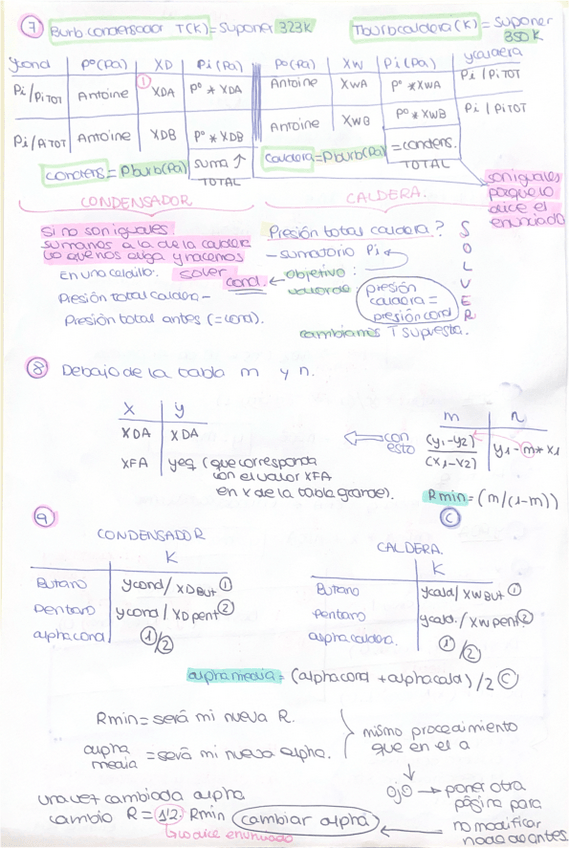 7 Burb condensador T(K) = Suponer 323K
Tburbcaldera (K) = Suponer 350K
ycond | Pº(Pa) | XD | Pi(Pa)
Pi/PiTOT | Antoine | ① XDA | Pº * XDA
Pi/PiTOT | Antoine | XDB | Pº * XDB
condens = Pburb(Pa) | suma ↑ TOTAL
Pº(Pa) | XW | Pi(Pa) | ycaldera
Antoine | XWA | Pº * XWA | Pi/PiTOT
Antoine | XWB | Pº * XWB | Pi/PiTOT
Caldera = Pburb(Pa) | = condens. TOTAL
son iguales
porque lo
dice el
enunciado
CONDENSADOR
CALDERA.
Si no son iguales
sumamos a la de la caldera
lo que nos diga y hacemos
En una celdilla:
Presión total caldera -
Presión total antes (= cond).
Presión total caldera?
- sumatorio Pi
cond. ← objetivo :
valor de :
presión
caldera =
presión cond
cambiamos T supuesta.
SOLVER
8 Debajo de la tabla m y n.
x | y
XDA | XDA
XFA | yeq (que corresponda
con el valor XFA
en x de la tabla grande).
⇐ con esto
m | n
(y1-y2)/(x1-x2) | y1-m*x1
Rmin = (m/(1-m))
C
9
CONDENSADOR
K
Butano | ycond/XDBut ①
Pentano | ycond/XDpent ②
alphacond | ①/②
CALDERA.
K
Butano | ycald/XWBut ①
Pentano | ycald./XWpent ②
alphacaldera. | ①/②
alpha media = (alphacond + alphacald)/2 C
Rmin = será mi nueva R.
alpha media = será mi nueva alpha.
mismo procedimiento
que en el a
ojo → poner otra
página para
no modificar
nada de antes
una vez cambiada alpha
cambio R = 1'2 · Rmin (cambiar alpha)
↳ lo dice enunciado